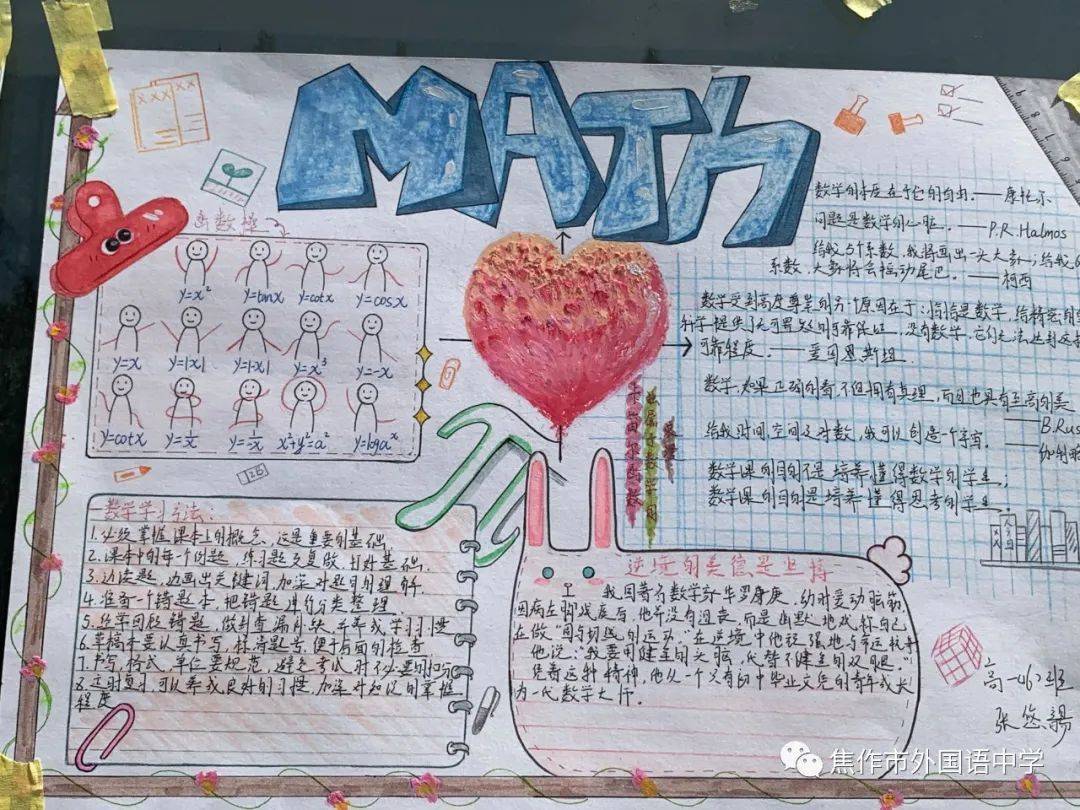 MATH
函数操
y=x² y=tanx y=cotx y=cosx
y=x y=|x| y=|-x| y=x³ y=-x
y=cotx y=1/x y=-1/x x²+y²=a² y=logaˣ
数学的本质在于它的自由.——康托尔
问题是数学的心脏.——P.R.Halmos
给我5个系数,我将画出一头大象;给我6
系数,大象将会摇动尾巴.——柯西
数学受到高度尊崇的另一个原因在于:恰恰是数学,给精密的自
科学提供了无可置疑的可靠保证,没有数学,它们无法达到这样
可靠程度.——爱因思斯坦
数学,如果正确的看,不但拥有真理,而且也具有至高的美
——B.Rus
给我时间,空间及对数,我可以创造一个宇宙.
——伽利略
数学课的目的不是培养懂得数学的学生,
数学课的目的是培养懂得思考的学生.
一数学学习方法:
1.必须掌握课本上的概念,这是重要的基础.
2.课本中的每个例题,练习题反复做,打好基础.
3.边读题,边画出关键词,加深对题目的理解.
4.准备一个错题本,把错题进行分类整理.
5.经常回顾错题,做到查漏补缺,并养成学习习惯
6.草稿本要认真书写,标清题号,便于后面的检查
7.书写,格式,单位要规范,避免考试时不必要的扣分
8.及时复习,可以养成良好的习惯,加深对知识的掌握
程度
逆境的美德是坚持
我国著名数学家华罗庚,幼时爱动脑筋,
因病左脚残废后,他并没有沮丧,而是幽默地戏称自己
在做“圆与切线的运动.”在逆境中他顽强地与命运抗争
他说:“我要用健全的头脑,代替不健全的双腿.”
凭着这种精神,他从一个只有初中毕业文凭的青年成长
为一代数学大师.
高一46班
张悠
焦作市外国语中学